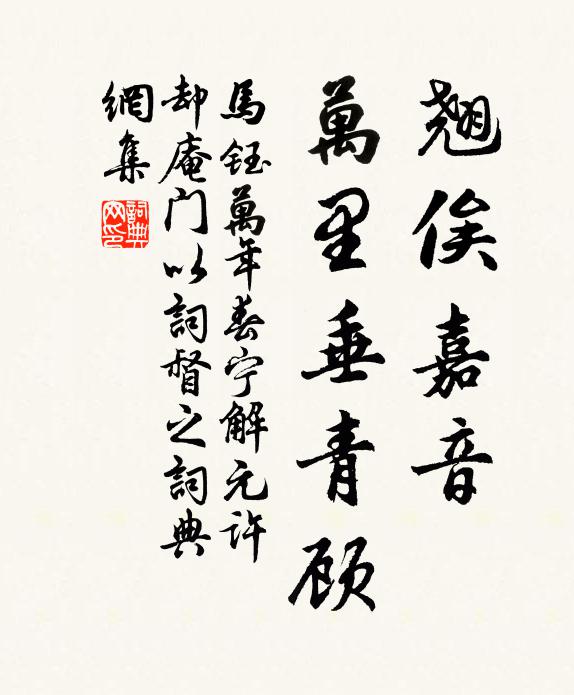 翹俟嘉音
萬里垂青顾
馬鈺萬年春宁解元许
却庵门以詞督之詞典
網集
詞典网印